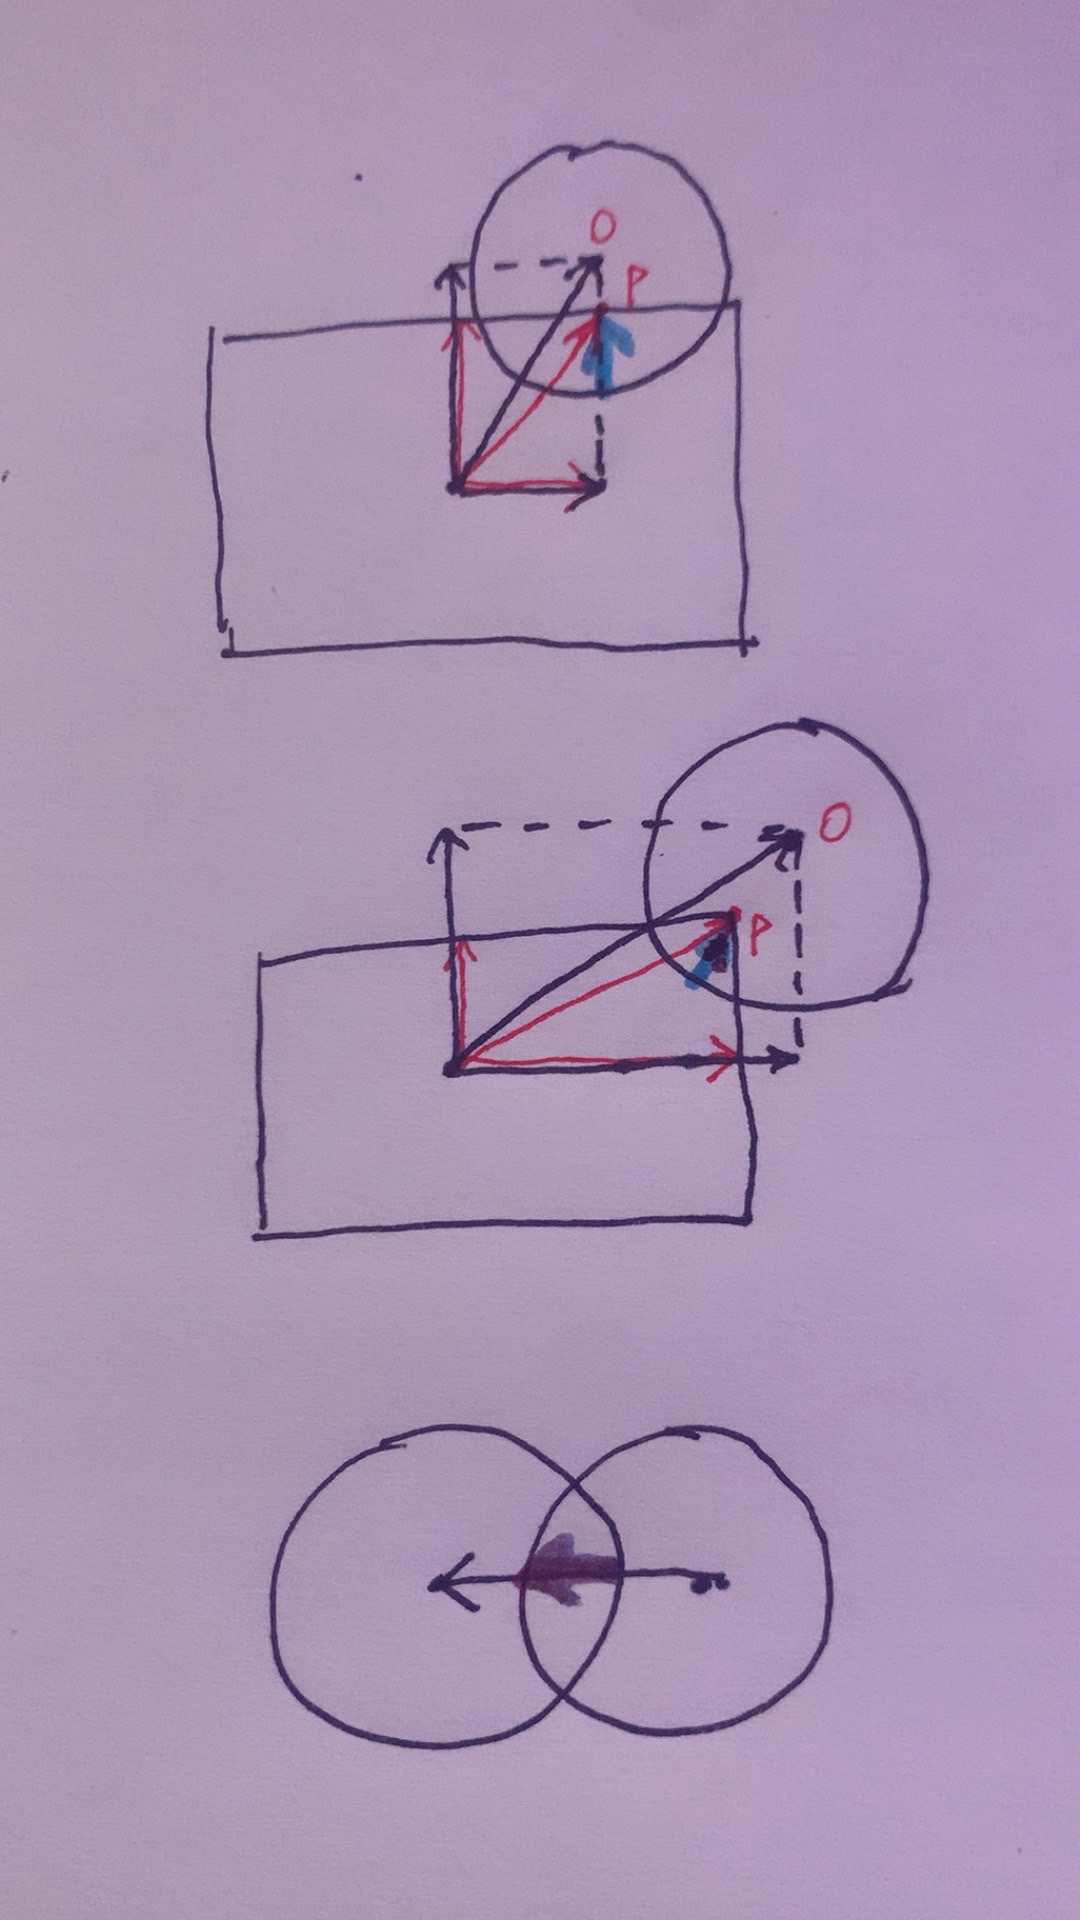 O
P
O
P